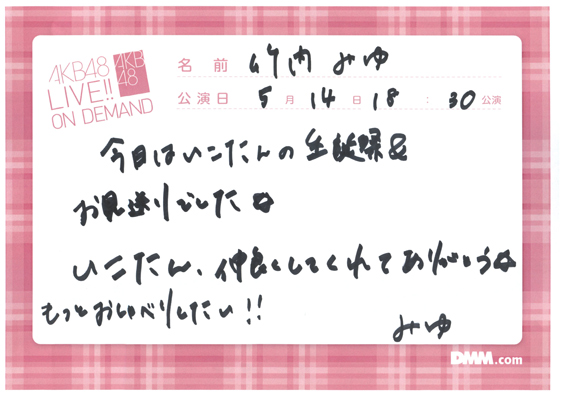 AKB48
LIVE!!
ON DEMAND
AKB
48
名前 竹内 みゆ
公演日 5月14日18:30公演
今日はいこたんの生誕祭&
お見送りでした☆
いこたん、仲良くしてくれてありがとう☆
もっとおしゃべりしたい!!
みゆ
DMM.com